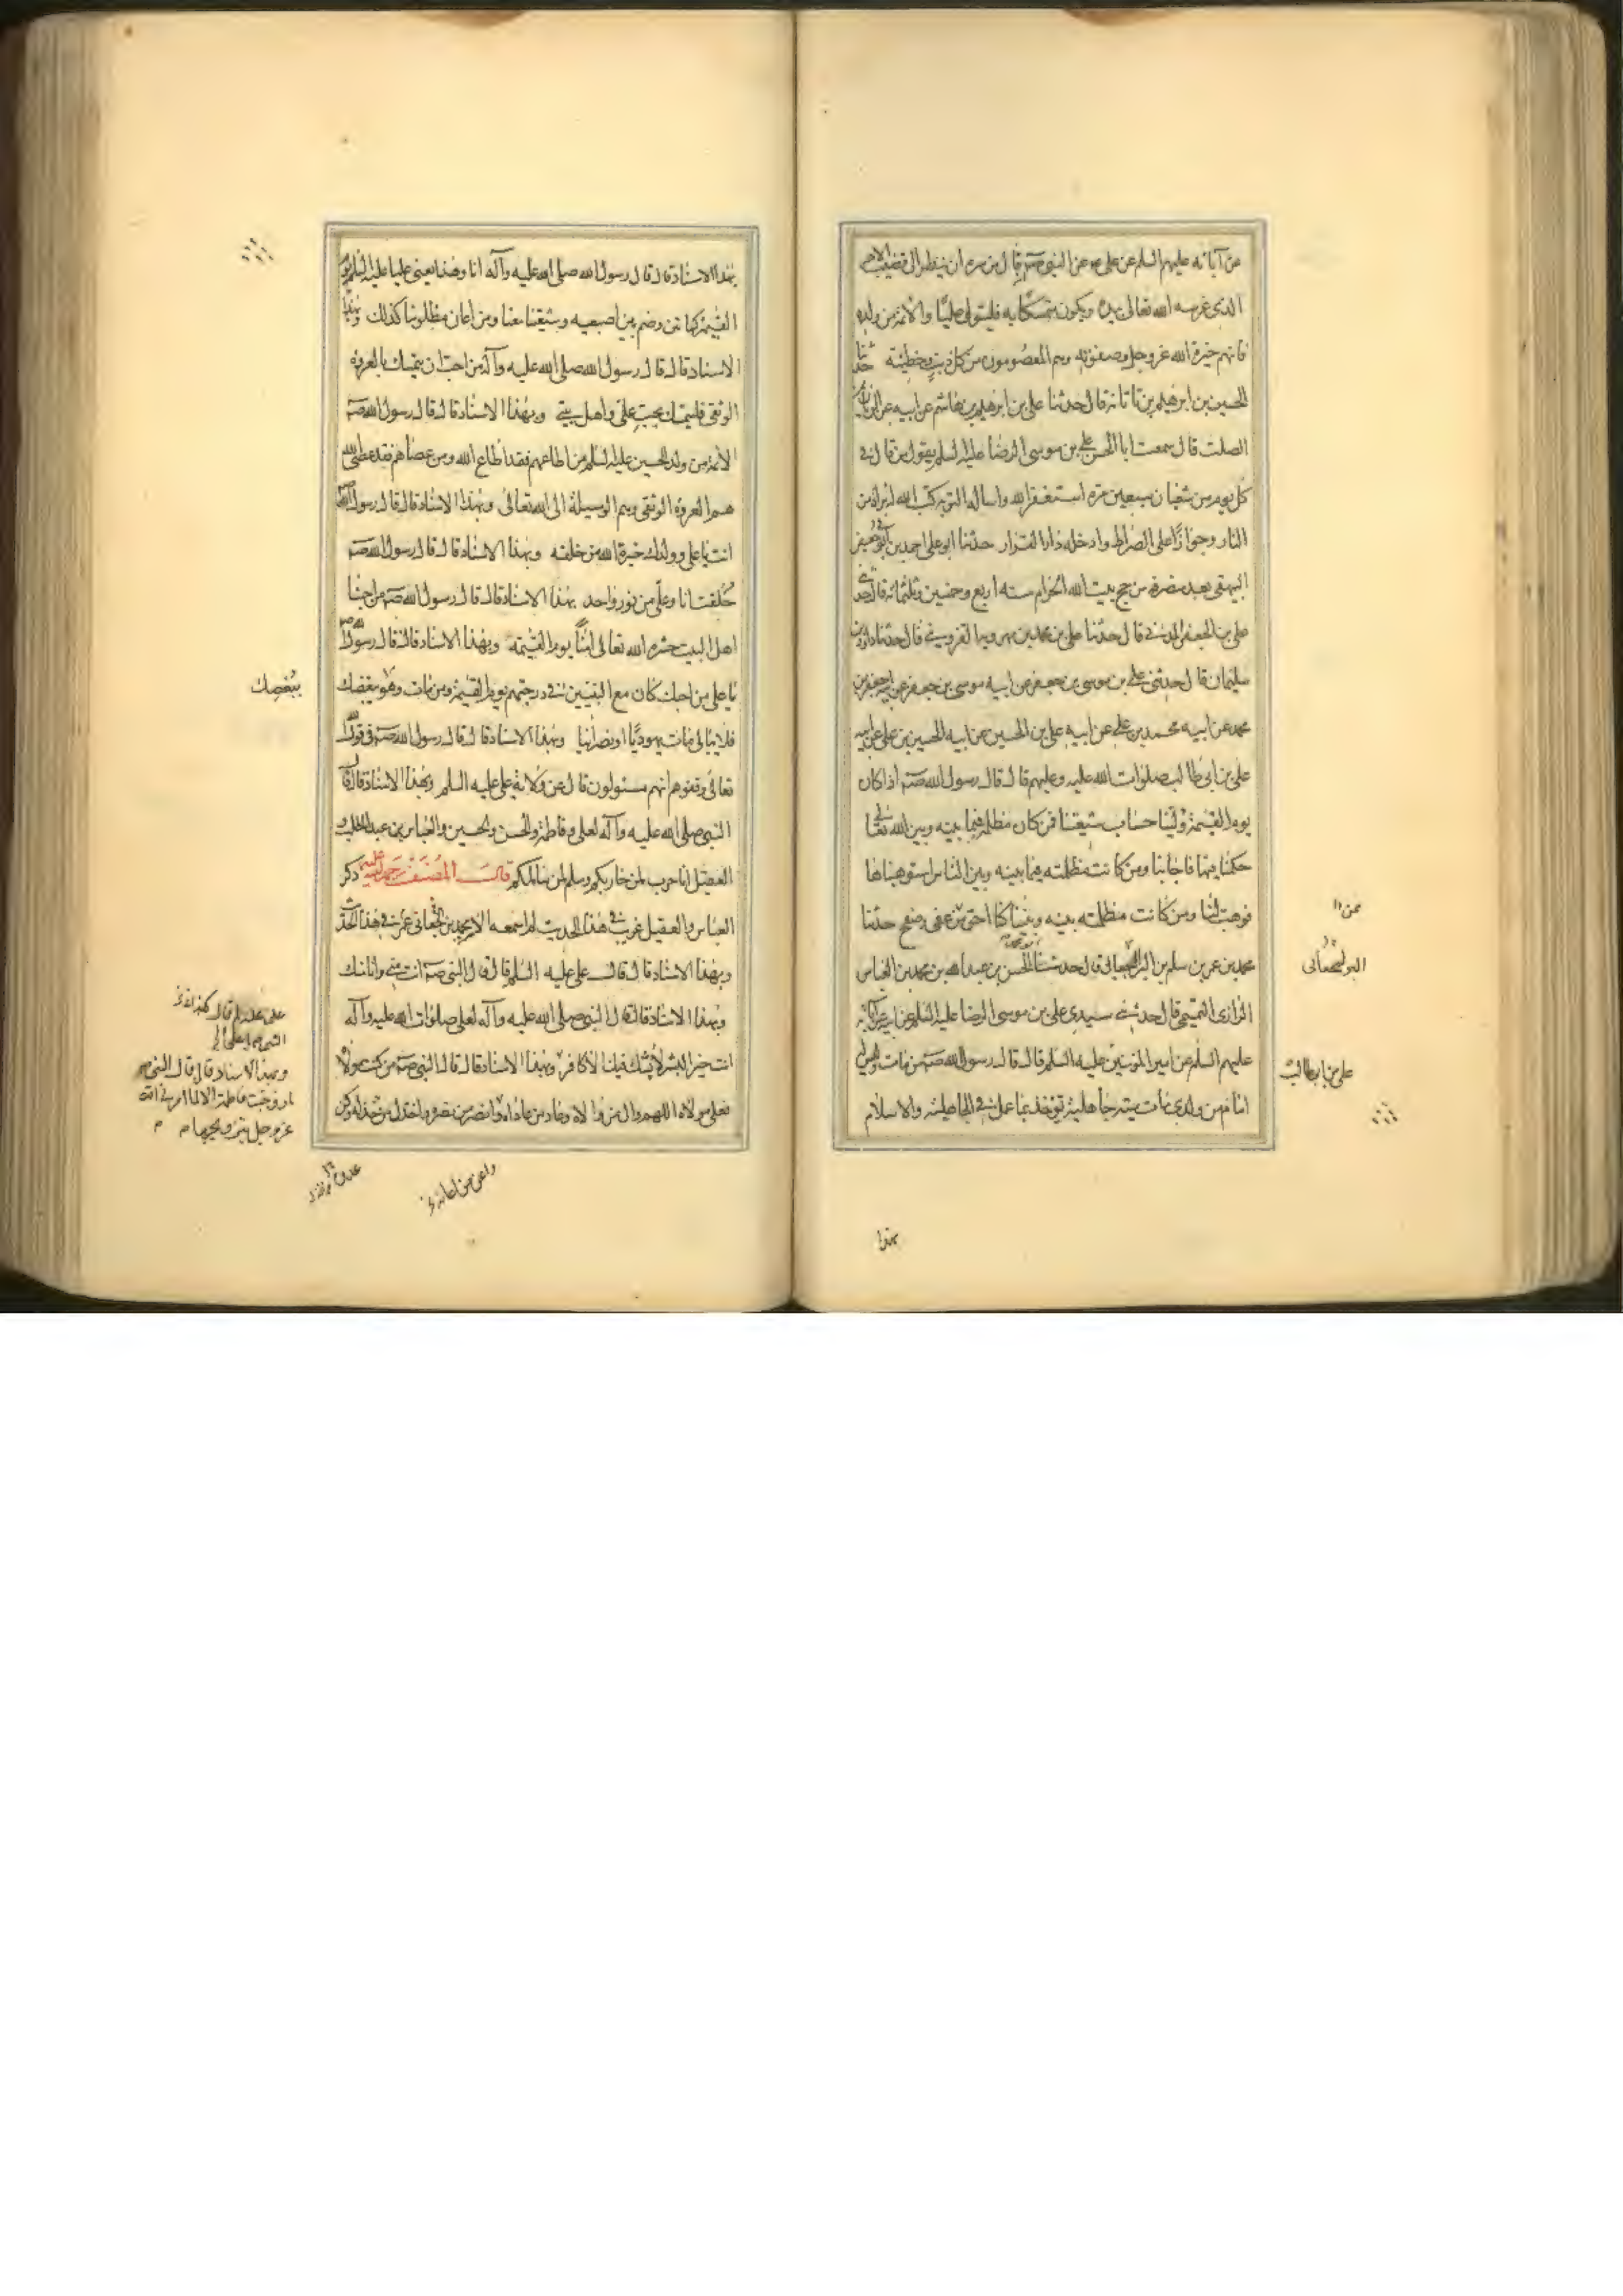 عن آبائه عليهم السلم عن علي عن النبي صه قال من سره ان ينظر الى القضيب الاحمر
الذي غرسه الله تعالى بيده ويكون متمسكا به فليتول عليا والائمة من ولده
فانهم خيرة الله عز وجل وصفوته وهم المعصومون من كل ذنب وخطيئة حدثنا
الحسين بن ابرهيم بن تاتانه قال حدثنا علي بن ابرهيم بن هاشم عن ابيه عن الريان بن
الصلت قال سمعت ابا الحسن علي بن موسى الرضا عليه السلم يقول من قال في
كل يوم من شعبان سبعين مرة استغفر الله واساله التوبة كتب الله له براة من
النار وجوازا على الصراط وادخله دار القرار حدثنا ابو علي احمد بن ابي جعفر
البيهقي بعيد منصرفه من حج بيت الله الحرام سنه اربع وخمسين وثلثمائه قال حدثني
علي بن الجعفر المدني قال حدثنا علي بن محمد بن مهرويه القزويني قال حدثنا داود بن
سليمان قال حدثني علي بن موسى بن جعفر عن ابيه موسى بن جعفر عن ابيه جعفر بن
محمد عن ابيه محمد بن علي عن ابيه علي بن الحسين عن ابيه الحسين بن علي عن ابيه
علي بن ابي طالب صلوات الله عليه وعليهم قال قال رسول الله صه اذا كان
يوم القيمة ولينا حساب شيعتنا فمن كان مظلمه فيما بينه وبين الله تعالى
حكمنا فيها فاجابنا ومن كانت مظلمته فيما بينه وبين الناس استوهبناها
فوهبت لنا ومن كانت مظلمته بينه وبيننا كنا احق من عفى وصفح حدثنا
ممن
محمد بن عمر بن سلم بن البراء الجعابي قال حدثنا ابو محمد الحسن بن عبد الله بن محمد بن العباس
الرازي التميمي قال حدثني سيدي علي بن موسى الرضا عليه السلم عن ابيه عن آبائه
عليهم السلم عن امير المؤمنين عليه السلم قال قال رسول الله صه من مات وليس له
علي بن ابي طالب
امام من ولدي مات ميتة جاهلية يوخذ بما عمل في الجاهلية والاسلام
بهذا
بهذا الاسناد قال قال رسول الله صلى الله عليه وآله انا وهذا يعني عليا عليه السلم يوم
القيمة كهاتين وضم بين اصبعيه وشيعتنا معنا ومن اعان مظلومنا كذلك وبهذا
الاسناد قال قال رسول الله صلى الله عليه وآله من احب ان يتمسك بالعروة
الوثقى فليتمسك بحب علي واهل بيتي وبهذا الاسناد قال قال رسول الله صه
الائمة من ولد الحسين عليه السلم من اطاعهم فقد اطاع الله ومن عصاهم فقد عصى الله
هم العروة الوثقى وهم الوسيلة الى الله تعالى وبهذا الاسناد قال قال رسول الله
انت يا علي وولدك خيرة الله من خلقه وبهذا الاسناد قال قال رسول الله صه
خلقت انا وعلي من نور واحد بهذا الاسناد قال قال رسول الله صه من احبنا
اهل البيت حشره الله تعالى امنا يوم القيمة وبهذا الاسناد قال قال رسول الله
يا علي من احبك كان مع النبيين في درجتهم يوم القيمة ومن مات وهو يبغضك
يبغضك
فلا يبالي مات يهوديا او نصرانيا وبهذا الاسناد قال قال رسول الله صه في قول الله
تعالى وقفوهم انهم مسئولون قال عن ولاية علي عليه السلم وبهذا الاسناد قال قال
النبي صلى الله عليه وآله لعلي وفاطمة والحسن والحسين والعباس بن عبد المطلب و
العقيل انا حرب لمن حاربكم وسلم لمن سالمكم قال المصنف رحمة الله عليه ذكر
العباس والعقيل غريب في هذا الحديث لم اسمعه الا من محمد بن عمر الجعابي في هذا الحديث
وبهذا الاسناد قال قال علي عليه السلم قال قال النبي صه انت مني وانا منك
وبهذا الاسناد قال قال النبي صلى الله عليه وآله لعلي صلوات الله عليه وآله
انت خير البشر لا يشك فيك الا كافر وبهذا الاسناد قال قال النبي صه من كنت مولاه
وبهذا الاسناد قال قال النبي ص
ما زوجت فاطمة الا لما امرني الله
عز وجل بتزويجها
فعلي مولاه اللهم وال من والاه وعاد من عاداه وانصر من نصره واخذل من خذله وكن
واعن من اعانه